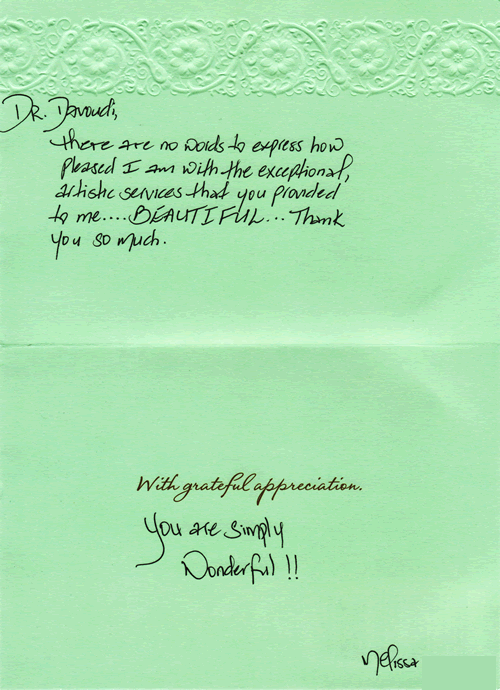 Dr. Davoudi,
there are no words to express how
pleased I am with the exceptional,
artistic services that you provided
to me....BEAUTIFUL... Thank
you so much.
With grateful appreciation.
You are simply
Wonderful!!
Melissa